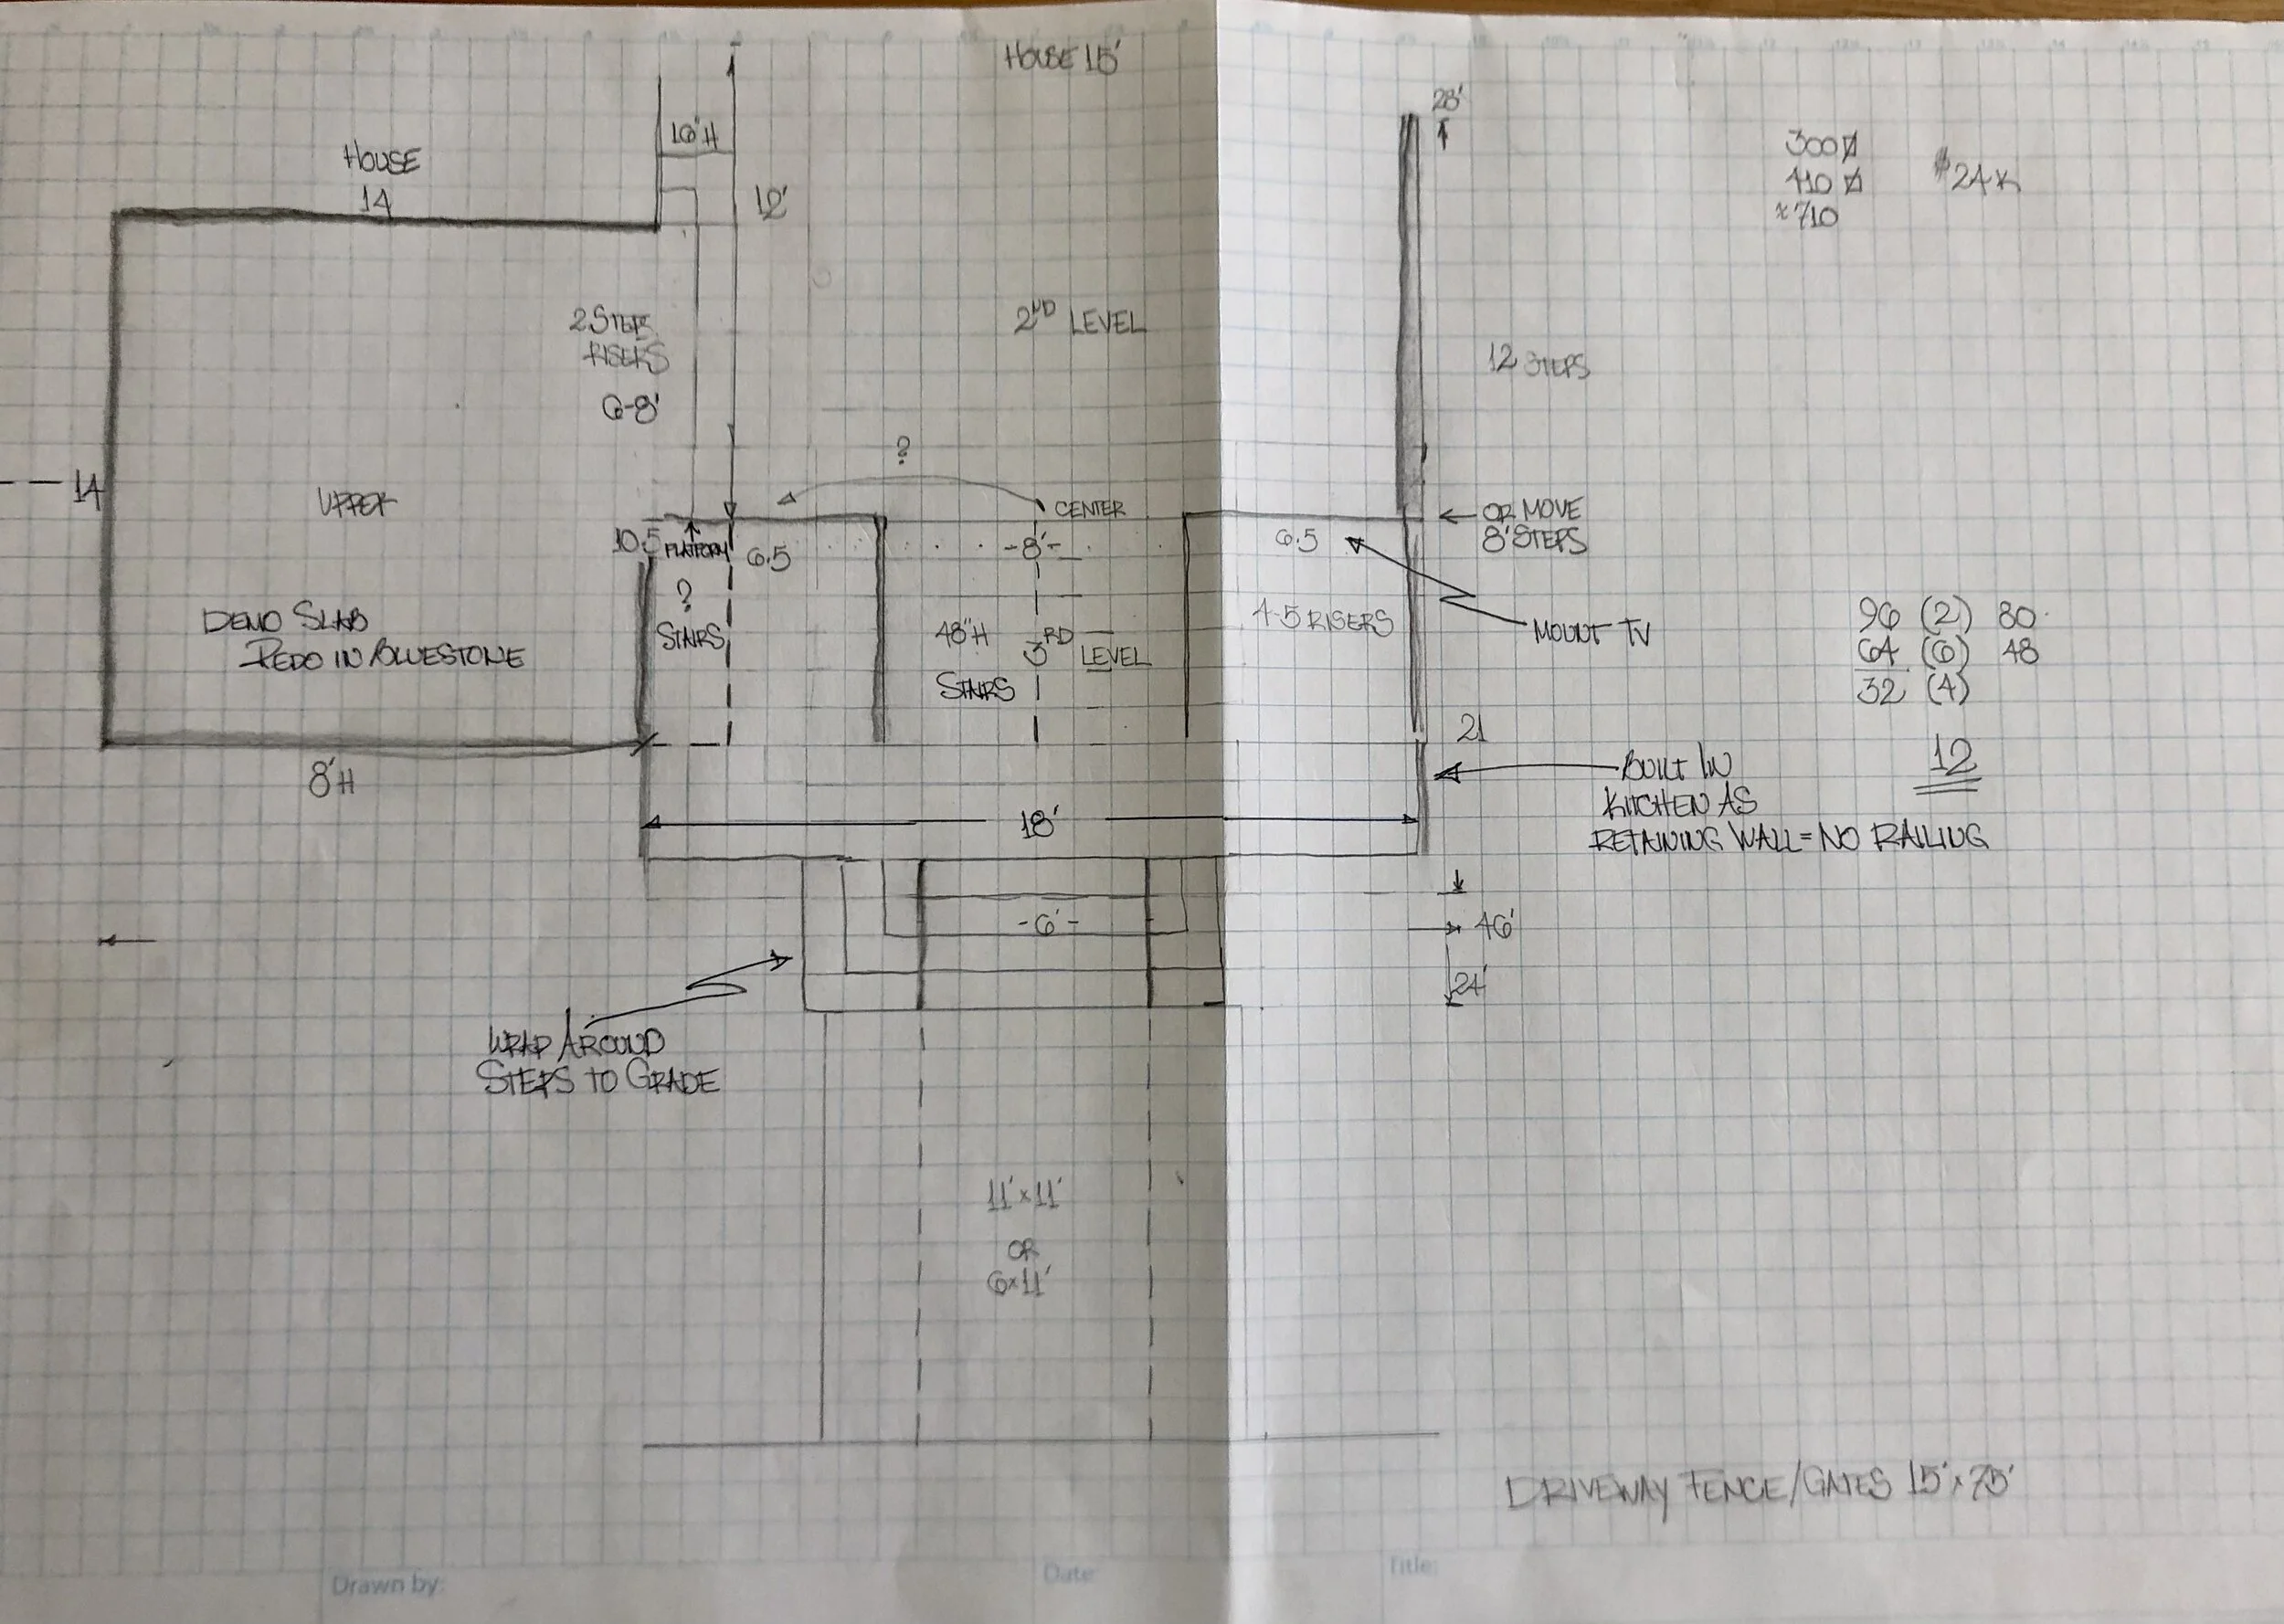 HOUSE 15'
28'
16"H
HOUSE
14
12'
300
410
710
$24K
2 STEP
RISERS
6-8'
2ND LEVEL
12 STEPS
?
14
UPPER
CENTER
OR MOVE
8' STEPS
10.5
PLATFORM
6.5
-8'-
6.5
?
STAIRS
48"H
STAIRS
3RD
LEVEL
4-5 RISERS
MOUNT TV
DEMO SLAB
REDO IN BLUESTONE
96 (2) 80
64 (6) 48
32 (4)
12
21
8'H
BUILT IN
KITCHEN AS
RETAINING WALL = NO RAILING
18'
-6'-
46'
24'
WRAP AROUND
STEPS TO GRADE
11'x11'
OR
6x11'
DRIVEWAY FENCE/GATES 15'x75'
Drawn by:
Date
Title: